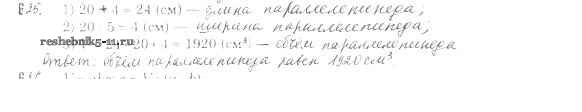 1) 20 + 4 = 24 (см) — длина параллелепипеда;
2) 20 : 5 = 4 (см) — ширина параллелепипеда;
reshebnik5-11.ru 20 · 4 = 1920 (см³) — объём параллелепипеда
Ответ: объём параллелепипеда равен 1920 см³.